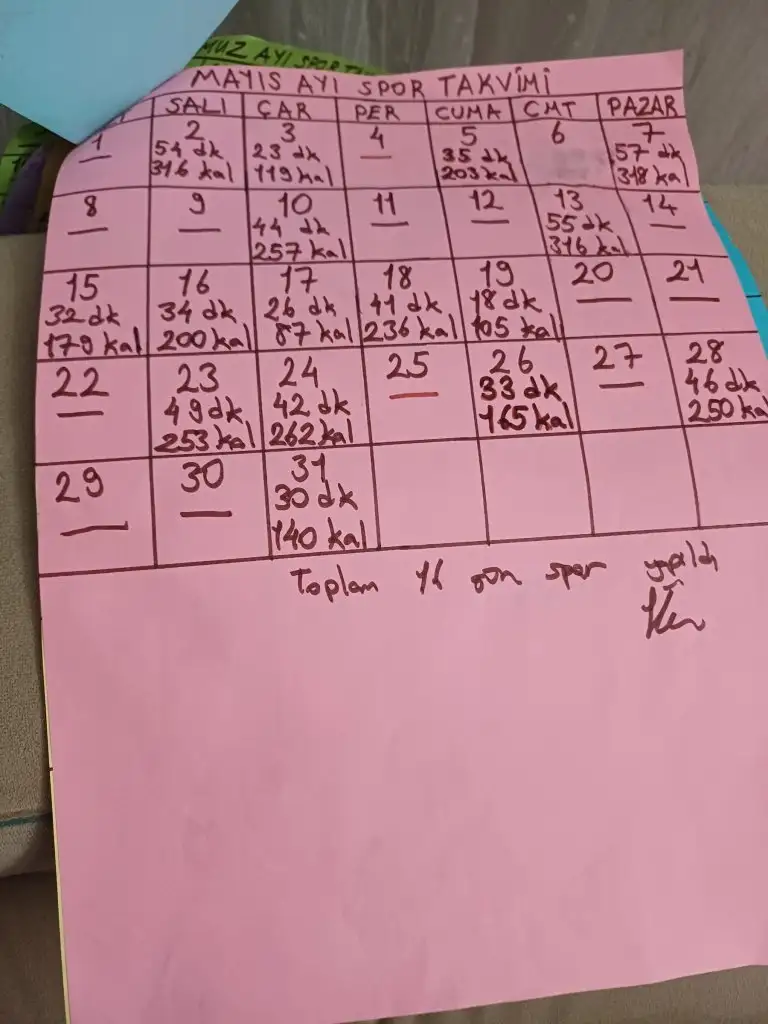 MUZ AYI SPOR TA
MAYIS AYI SPOR TAKVİMİ
SALI ÇAR PER CUMA CMT PAZAR
1 2 3 4 5 6 7
— 54 dk 23 dk — 35 dk 57 dk
316 kal 119 kal 203 kal 318 kal
8 9 10 11 12 13 14
— — 44 dk — — 55 dk —
257 kal 316 kal
15 16 17 18 19 20 21
32 dk 34 dk 26 dk 41 dk 18 dk — —
179 kal 200 kal 87 kal 236 kal 105 kal
22 23 24 25 26 27 28
— 49 dk 42 dk — 33 dk — 46 dk
253 kal 262 kal 165 kal 250 kal
29 30 31
— — 30 dk
140 kal
Toplam gün spor yapıldı